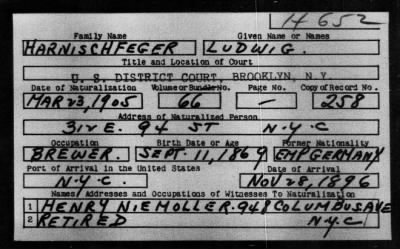 H 652
Family Name Given Name or Names
HARNISCHFEGER LUDWIG.
Title and Location of Court
U. S. DISTRICT COURT, BROOKLYN, N.Y.
Date of Naturalization Volume or Bundle No. Page No. Copy of Record No.
MAR 23, 1905 66 — 258
Address of Naturalized Person
312 E. 94 ST N.Y.C
Occupation Birth Date or Age Former Nationality
BREWER. SEPT. 11, 1869 EMP GERMANY
Port of Arrival in the United States Date of Arrival
N.Y.C. NOV 28, 1896
Names, Addresses and Occupations of Witnesses To Naturalization
1 HENRY NIEMOLLER. 948 COLUMBUS AVE
2 RETIRED N.Y.C